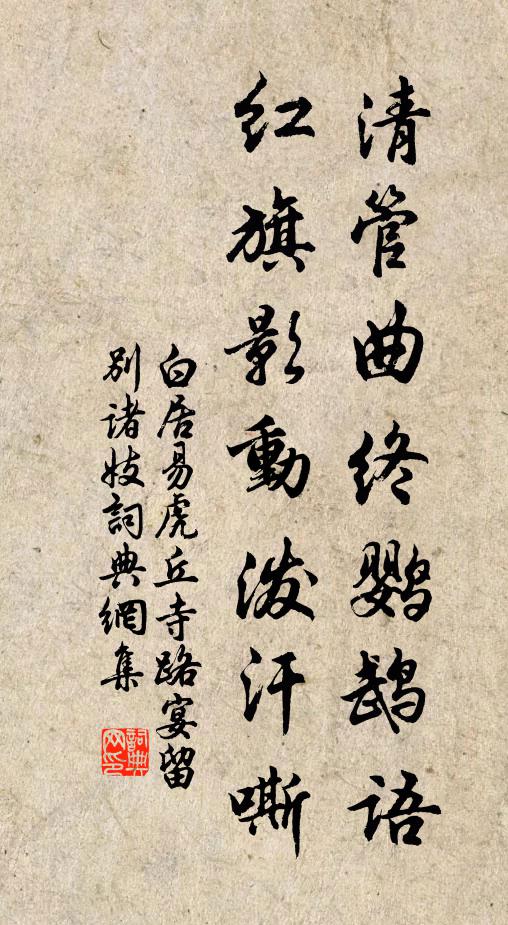 清管曲终鹦鹉语
红旗影動泼汗嘶
白居易虎丘寺路宴留
别诸妓詞典網集
詞典
网印